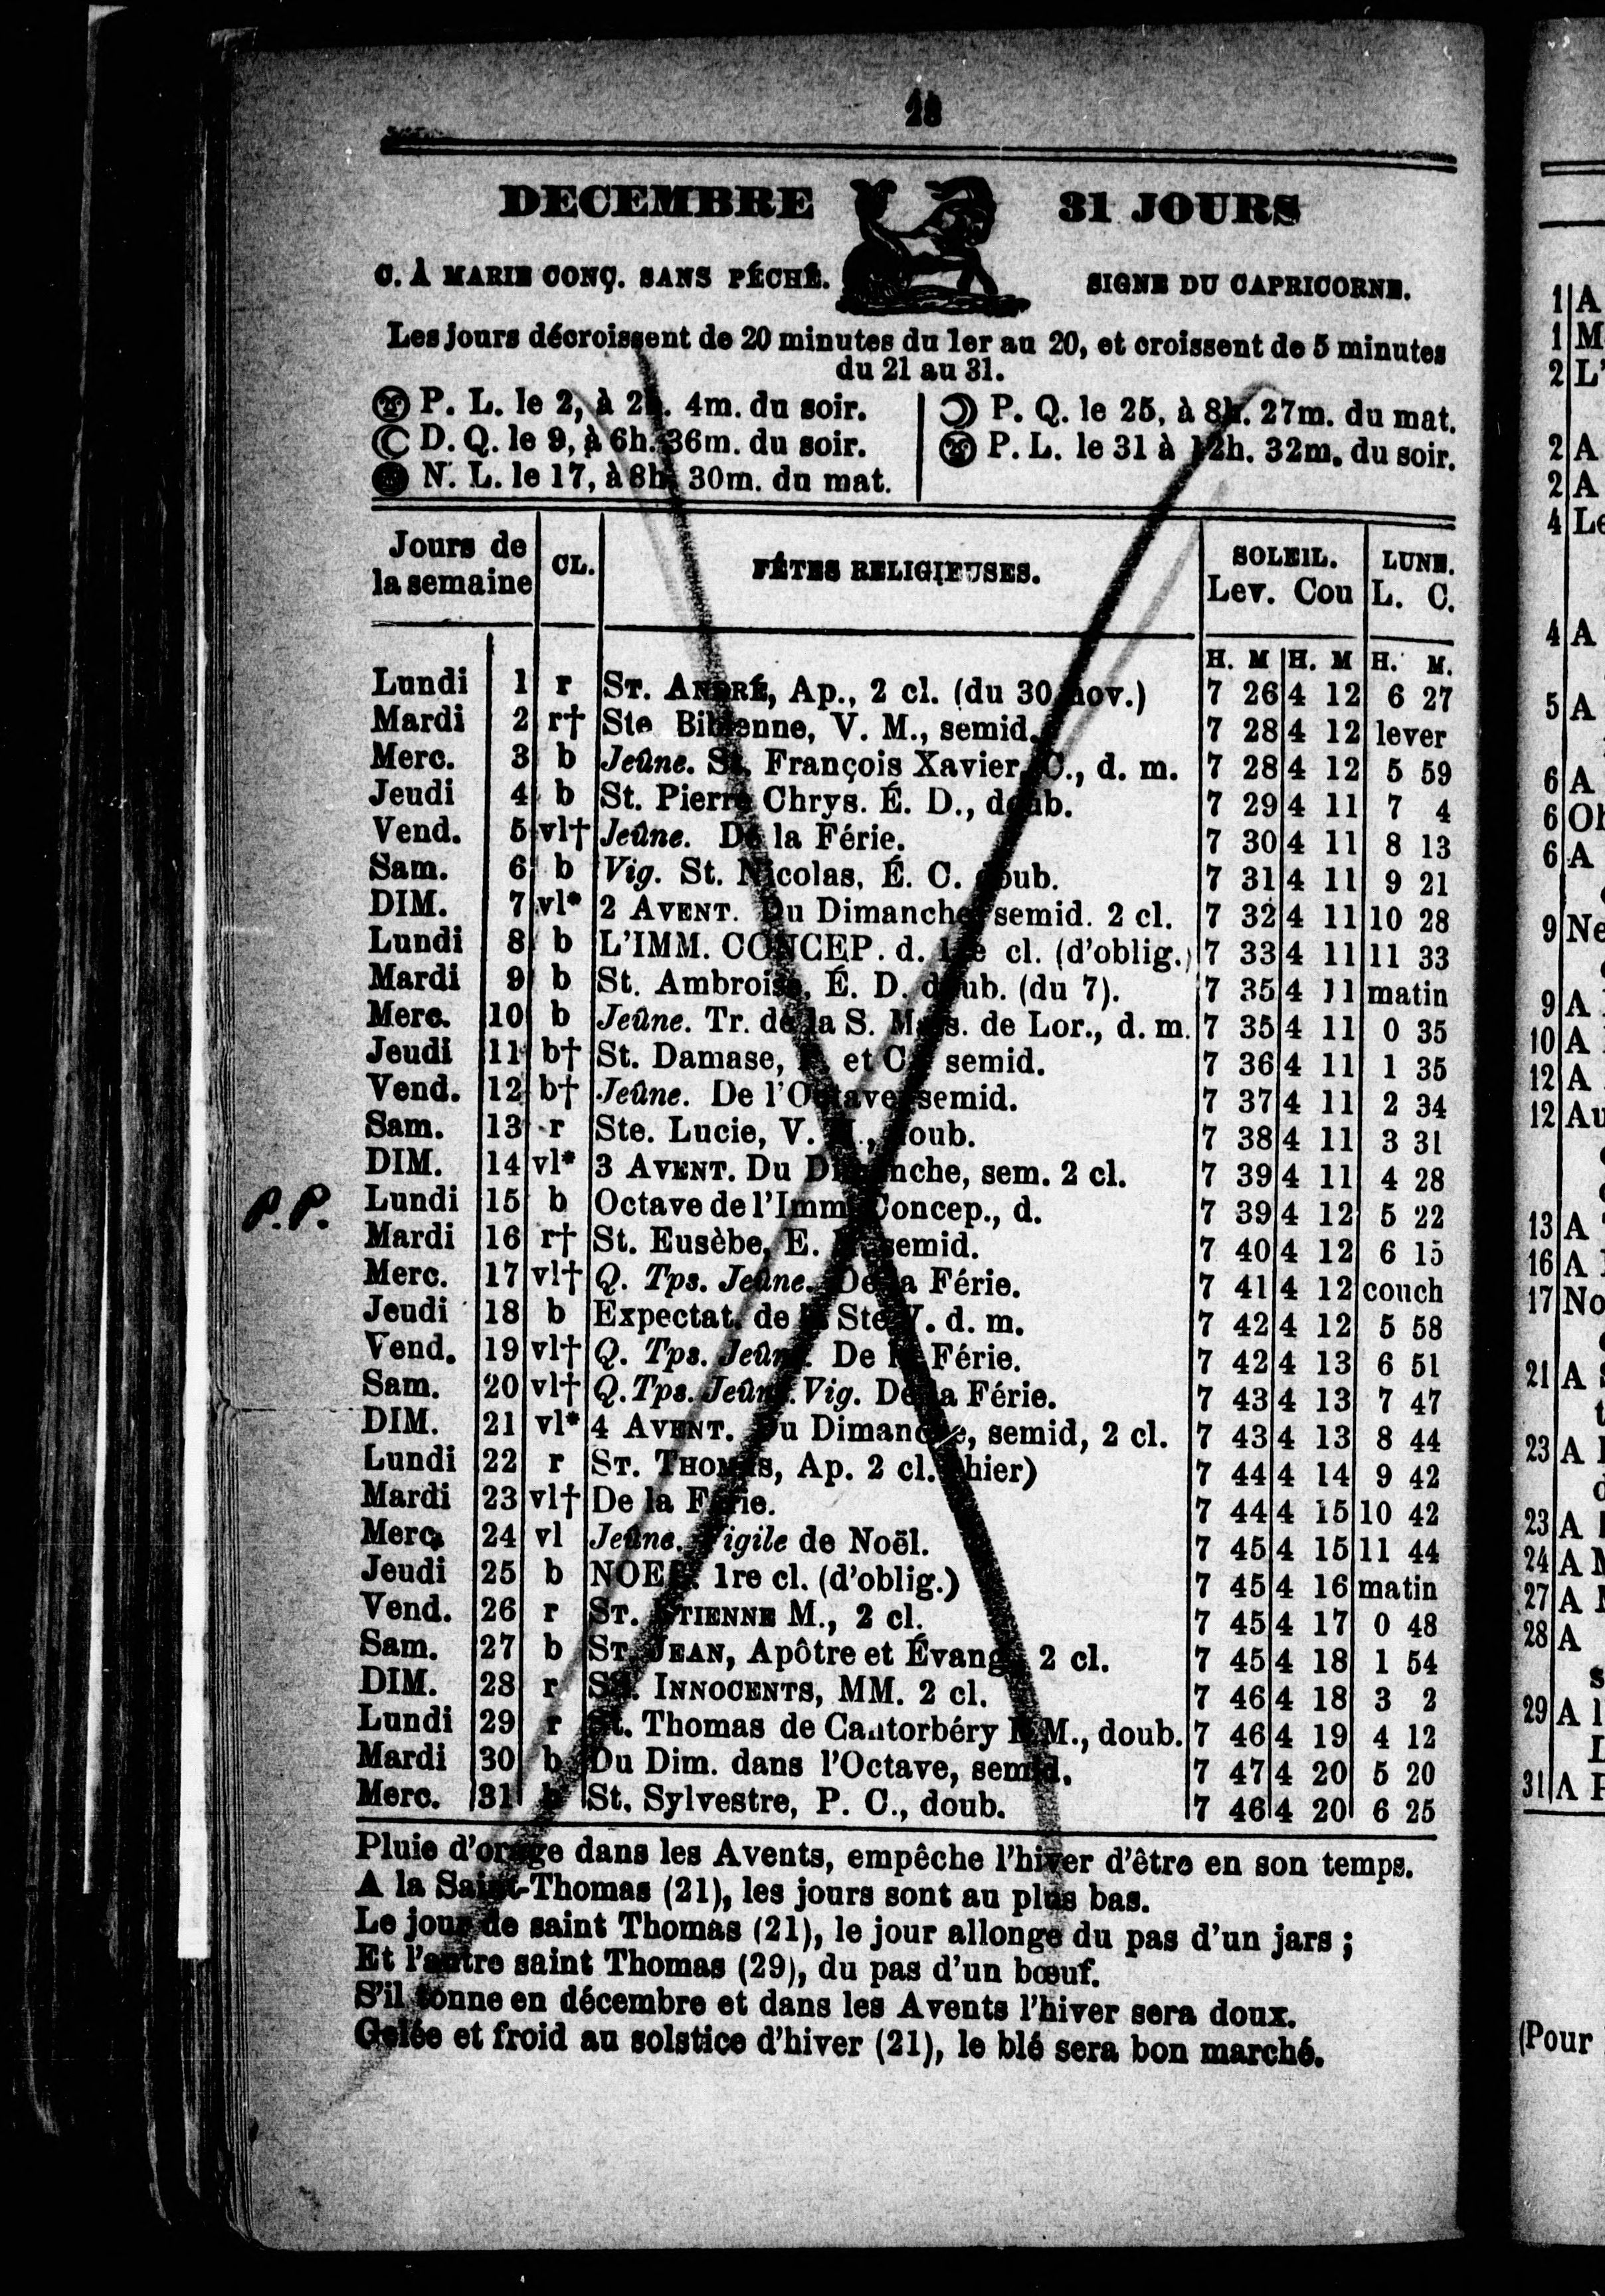 28
DECEMBRE 31 JOURS
C. À MARIE CONÇ. SANS PÉCHÉ. SIGNE DU CAPRICORNE.
Les jours décroissent de 20 minutes du 1er au 20, et croissent de 5 minutes
du 21 au 31.
P. L. le 2, à 2h. 4m. du soir.
D. Q. le 9, à 6h. 36m. du soir.
N. L. le 17, à 8h. 30m. du mat.
P. Q. le 25, à 8h. 27m. du mat.
P. L. le 31 à 12h. 32m. du soir.
Jours de la semaine CL. FÊTES RELIGIEUSES. SOLEIL. LUNE.
Lev. Cou L. C.
H. M H. M H. M.
Lundi 1 r ST. ANDRÉ, Ap., 2 cl. (du 30 nov.) 7 26 4 12 6 27
Mardi 2 r† Ste Bibienne, V. M., semid. 7 28 4 12 lever
Merc. 3 b Jeûne. St. François Xavier, C., d. m. 7 28 4 12 5 59
Jeudi 4 b St. Pierre Chrys. É. D., doub. 7 29 4 11 7 4
Vend. 5 vl† Jeûne. De la Férie. 7 30 4 11 8 13
Sam. 6 b Vig. St. Nicolas, É. C. doub. 7 31 4 11 9 21
DIM. 7 vl* 2 AVENT. Du Dimanche, semid. 2 cl. 7 32 4 11 10 28
Lundi 8 b L'IMM. CONCEP. d. 1re cl. (d'oblig.) 7 33 4 11 11 33
Mardi 9 b St. Ambroise, É. D. doub. (du 7). 7 35 4 11 matin
Merc. 10 b Jeûne. Tr. de la S. Mais. de Lor., d. m. 7 35 4 11 0 35
Jeudi 11 b† St. Damase, et C., semid. 7 36 4 11 1 35
Vend. 12 b† Jeûne. De l'Octave, semid. 7 37 4 11 2 34
Sam. 13 r Ste. Lucie, V. M., doub. 7 38 4 11 3 31
DIM. 14 vl* 3 AVENT. Du Dimanche, sem. 2 cl. 7 39 4 11 4 28
P.P. Lundi 15 b Octave de l'Imm. Concep., d. 7 39 4 12 5 22
Mardi 16 r† St. Eusèbe, E. M. semid. 7 40 4 12 6 15
Merc. 17 vl† Q. Tps. Jeûne. De la Férie. 7 41 4 12 couch
Jeudi 18 b Expectat. de la Ste V. d. m. 7 42 4 12 5 58
Vend. 19 vl† Q. Tps. Jeûne. De la Férie. 7 42 4 13 6 51
Sam. 20 vl† Q. Tps. Jeûne. Vig. De la Férie. 7 43 4 13 7 47
DIM. 21 vl* 4 AVENT. Du Dimanche, semid, 2 cl. 7 43 4 13 8 44
Lundi 22 r ST. THOMAS, Ap. 2 cl. (hier) 7 44 4 14 9 42
Mardi 23 vl† De la Férie. 7 44 4 15 10 42
Merc. 24 vl Jeûne. Vigile de Noël. 7 45 4 15 11 44
Jeudi 25 b NOEL. 1re cl. (d'oblig.) 7 45 4 16 matin
Vend. 26 r ST. ETIENNE M., 2 cl. 7 45 4 17 0 48
Sam. 27 b ST. JEAN, Apôtre et Évang. 2 cl. 7 45 4 18 1 54
DIM. 28 r SS. INNOCENTS, MM. 2 cl. 7 46 4 18 3 2
Lundi 29 r St. Thomas de Cantorbéry E. M., doub. 7 46 4 19 4 12
Mardi 30 b Du Dim. dans l'Octave, semid. 7 47 4 20 5 20
Merc. 31 b St. Sylvestre, P. C., doub. 7 46 4 20 6 25
Pluie d'orage dans les Avents, empêche l'hiver d'être en son temps.
A la Saint-Thomas (21), les jours sont au plus bas.
Le jour de saint Thomas (21), le jour allonge du pas d'un jars ;
Et l'autre saint Thomas (29), du pas d'un bœuf.
S'il tonne en décembre et dans les Avents l'hiver sera doux.
Gelée et froid au solstice d'hiver (21), le blé sera bon marché.
1 A
1 M
2 L'
2 A
2 A
4 Le
4 A
5 A
6 A
6 Ol
6 A
9 Ne
9 A
10 A
12 A
12 Au
13 A
16 A
17 No
21 A
23 A
23 A
24 A
27 A
28 A
29 A
31 A
(Pour